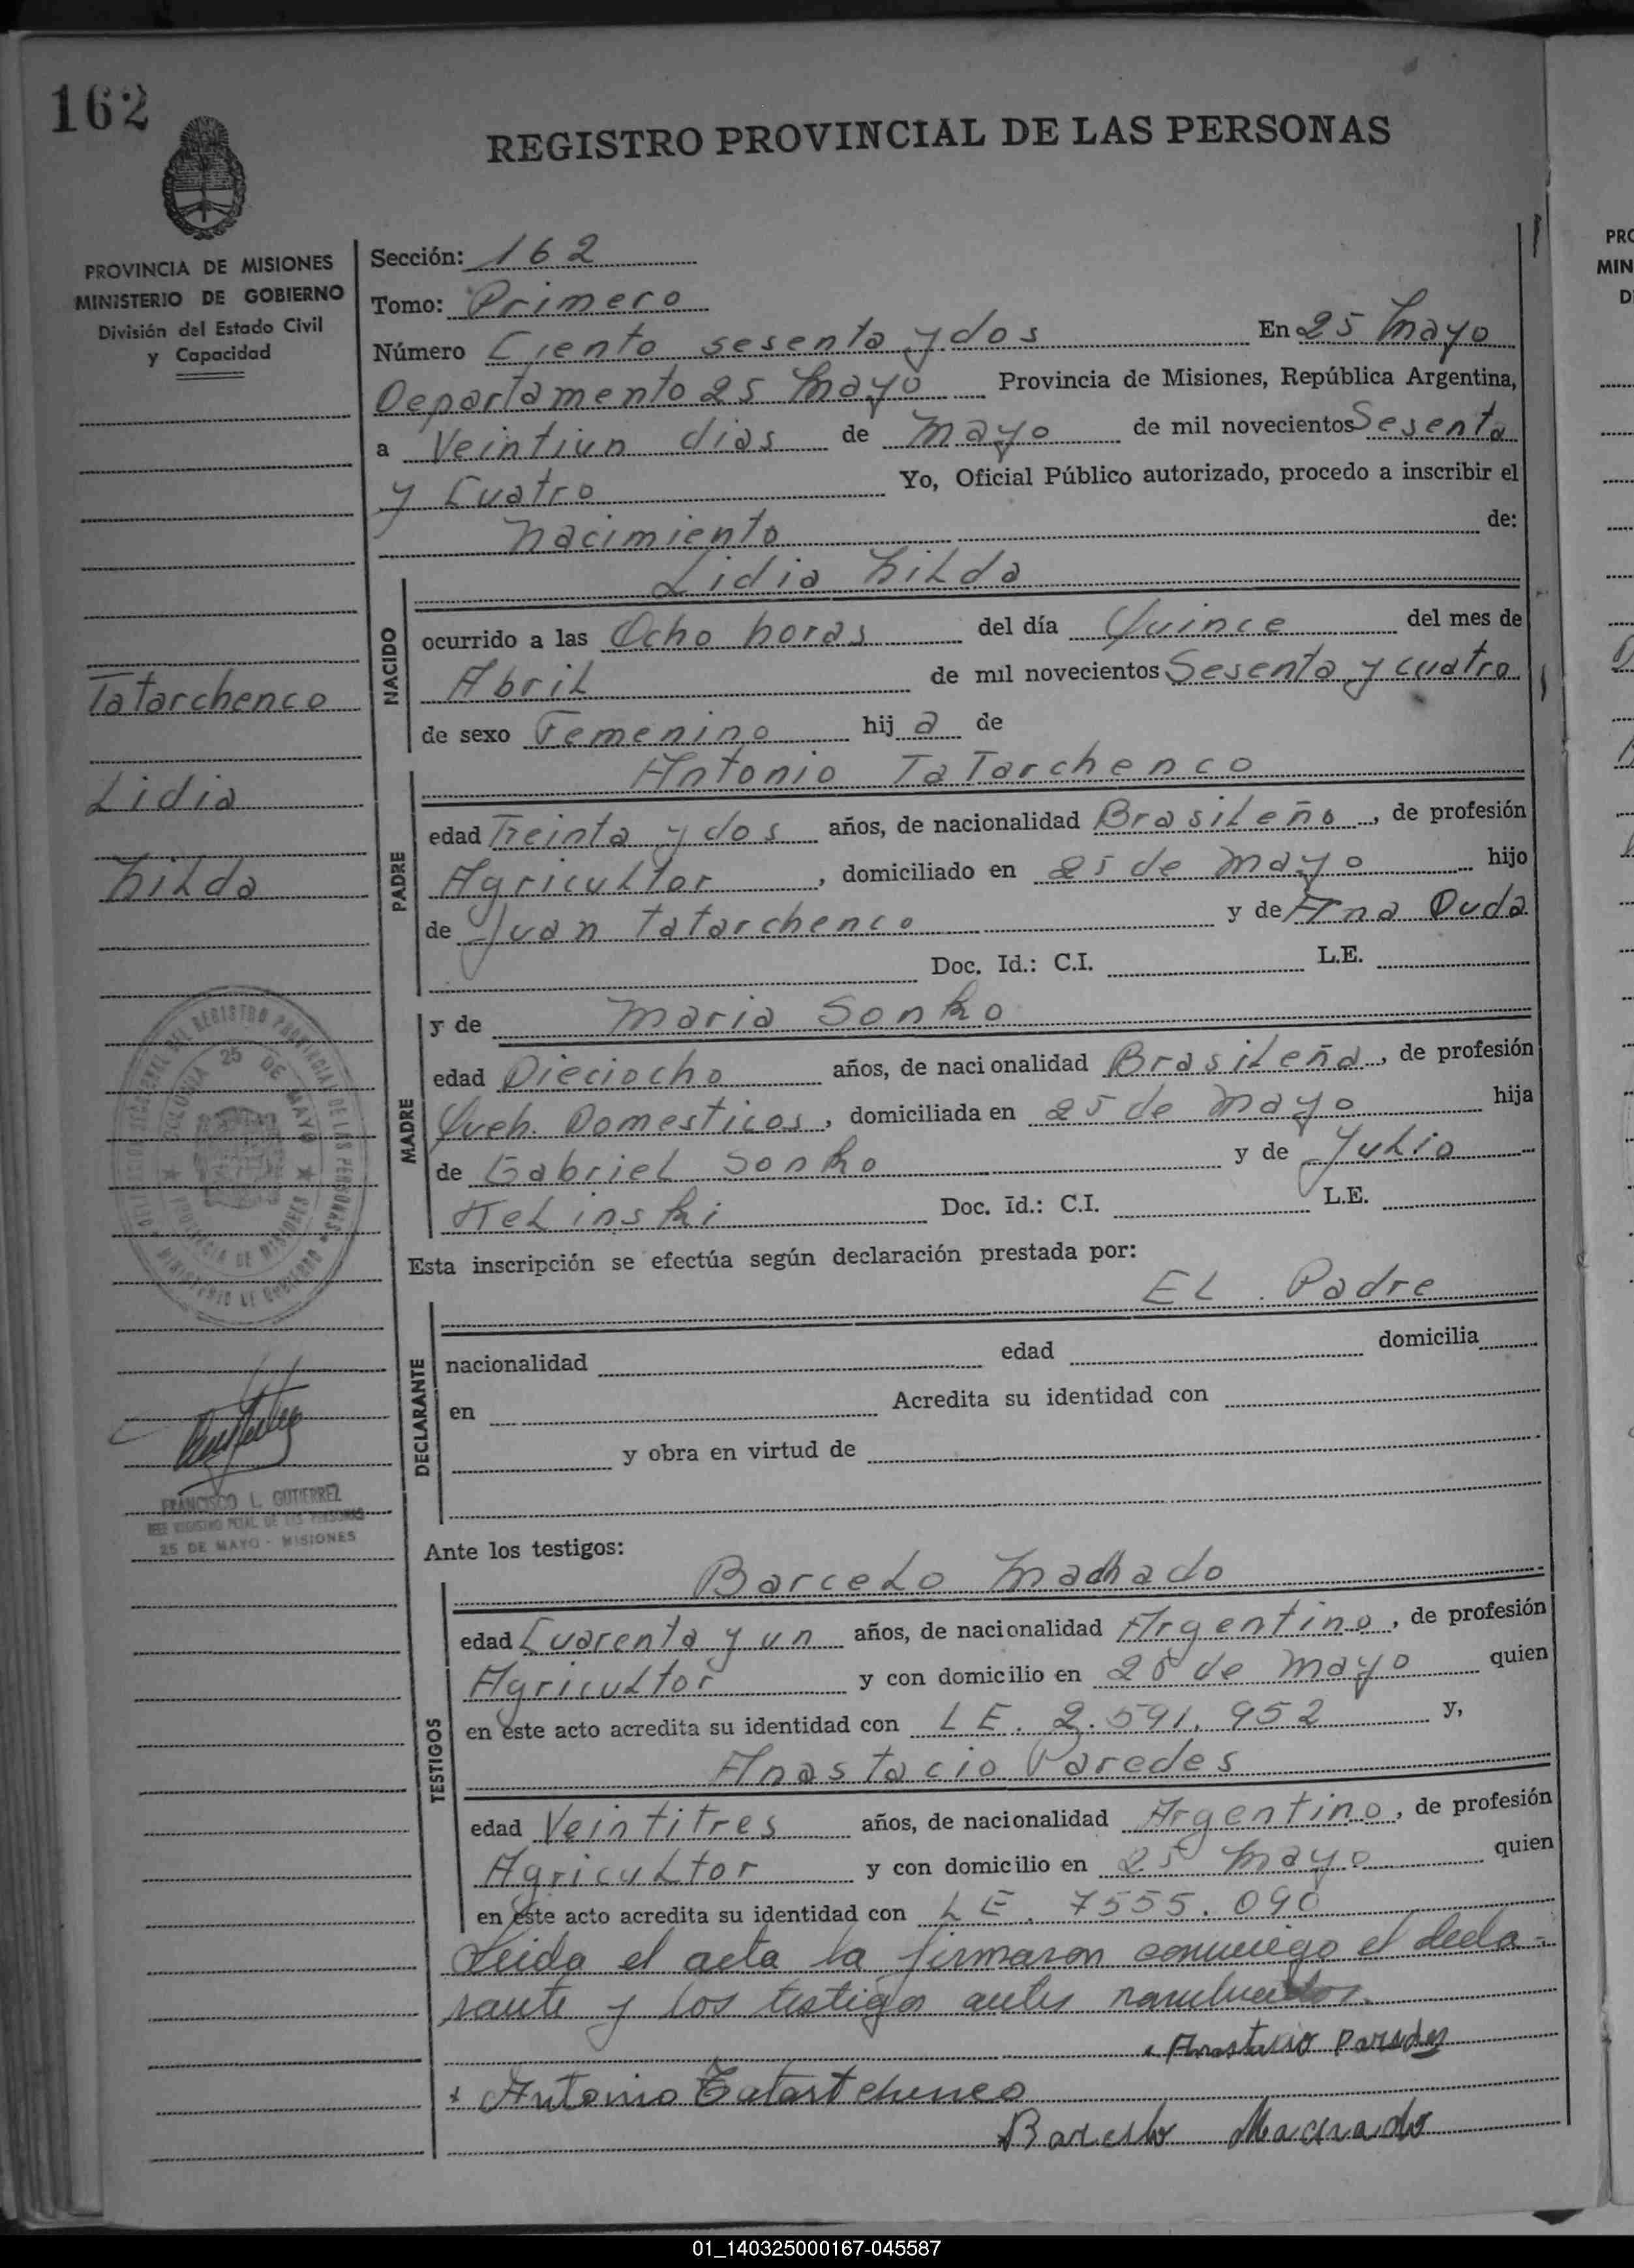 162
REGISTRO PROVINCIAL DE LAS PERSONAS
PROVINCIA DE MISIONES
MINISTERIO DE GOBIERNO
División del Estado Civil
y Capacidad
Tatarchenco
Lidia
hilda
COLONIA 25 DE MAYO
PROVINCIA DE MISIONES
MINISTERIO DE GOBIERNO
FRANCISCO L. GUTIERREZ
25 DE MAYO - MISIONES
Sección: 162
Tomo: Primero
Número Ciento sesenta y dos En 25 Mayo
Departamento 25 Mayo Provincia de Misiones, República Argentina,
a Veintiun dias de Mayo de mil novecientos Sesenta
y Cuatro Yo, Oficial Público autorizado, procedo a inscribir el
nacimiento de:
Lidia hilda
NACIDO
ocurrido a las Ocho horas del día Quince del mes de
Abril de mil novecientos Sesenta y cuatro
de sexo Femenino hija de
Antonio Tatarchenco
PADRE
edad Treinta y dos años, de nacionalidad Brasileño, de profesión
Agricultor, domiciliado en 25 de Mayo hijo
de Juan Tatarchenco y de Ana Duda
Doc. Id.: C.I. L.E.
y de Maria Sonko
MADRE
edad Dieciocho años, de nacionalidad Brasileña, de profesión
Queh. Domesticos, domiciliada en 25 de Mayo hija
de Gabriel Sonko y de Julia
Kelinski Doc. Id.: C.I. L.E.
Esta inscripción se efectúa según declaración prestada por:
EL Padre
DECLARANTE
nacionalidad edad domicilia
en Acredita su identidad con
y obra en virtud de
Ante los testigos:
Barcelo Machado
TESTIGOS
edad Cuarenta y un años, de nacionalidad Argentino, de profesión
Agricultor y con domicilio en 25 de Mayo quien
en este acto acredita su identidad con LE. 2.591.952 y,
Anastacio Paredes
edad Veintitres años, de nacionalidad Argentino, de profesión
Agricultor y con domicilio en 25 Mayo quien
en este acto acredita su identidad con LE. 7555.090
Leida el acta la firmaron conmigo el decla-
rante y los testigos antes nombrados.
Anastacio Paredes
Antonio Tatartchenco
Barcelo Machado
01_140325000167-045587